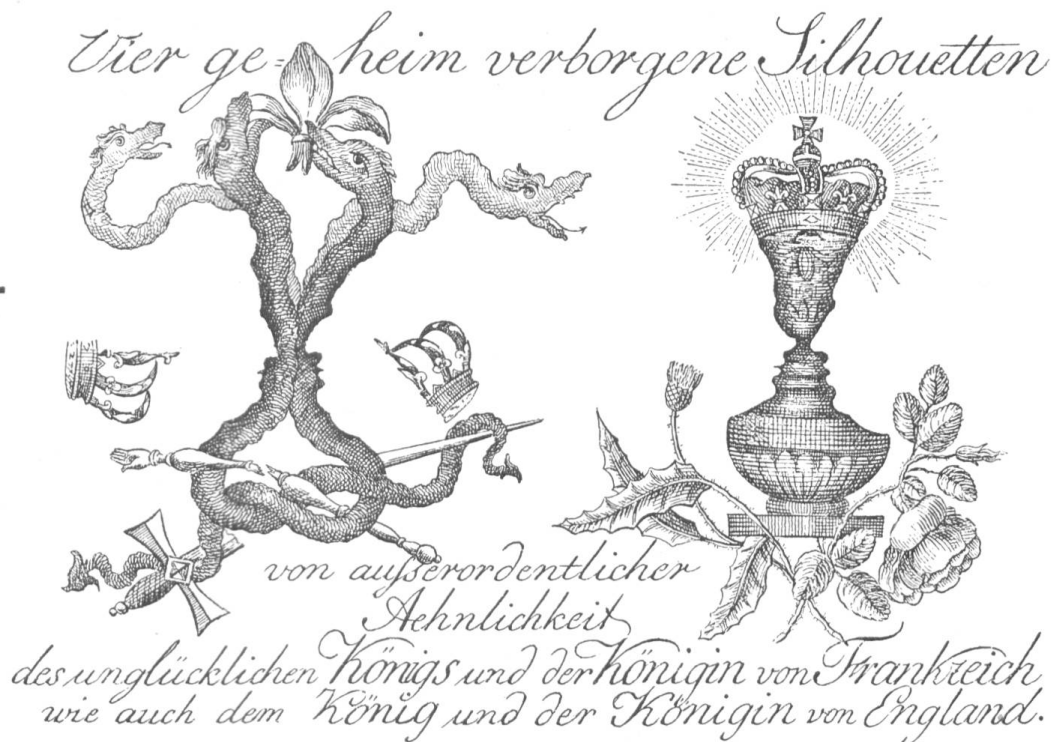 Vier ge= heim verborgene Silhouetten
von außerordentlicher
Aehnlichkeit
des unglücklichen Königs und der Königin von Frankreich
wie auch dem König und der Königin von England.